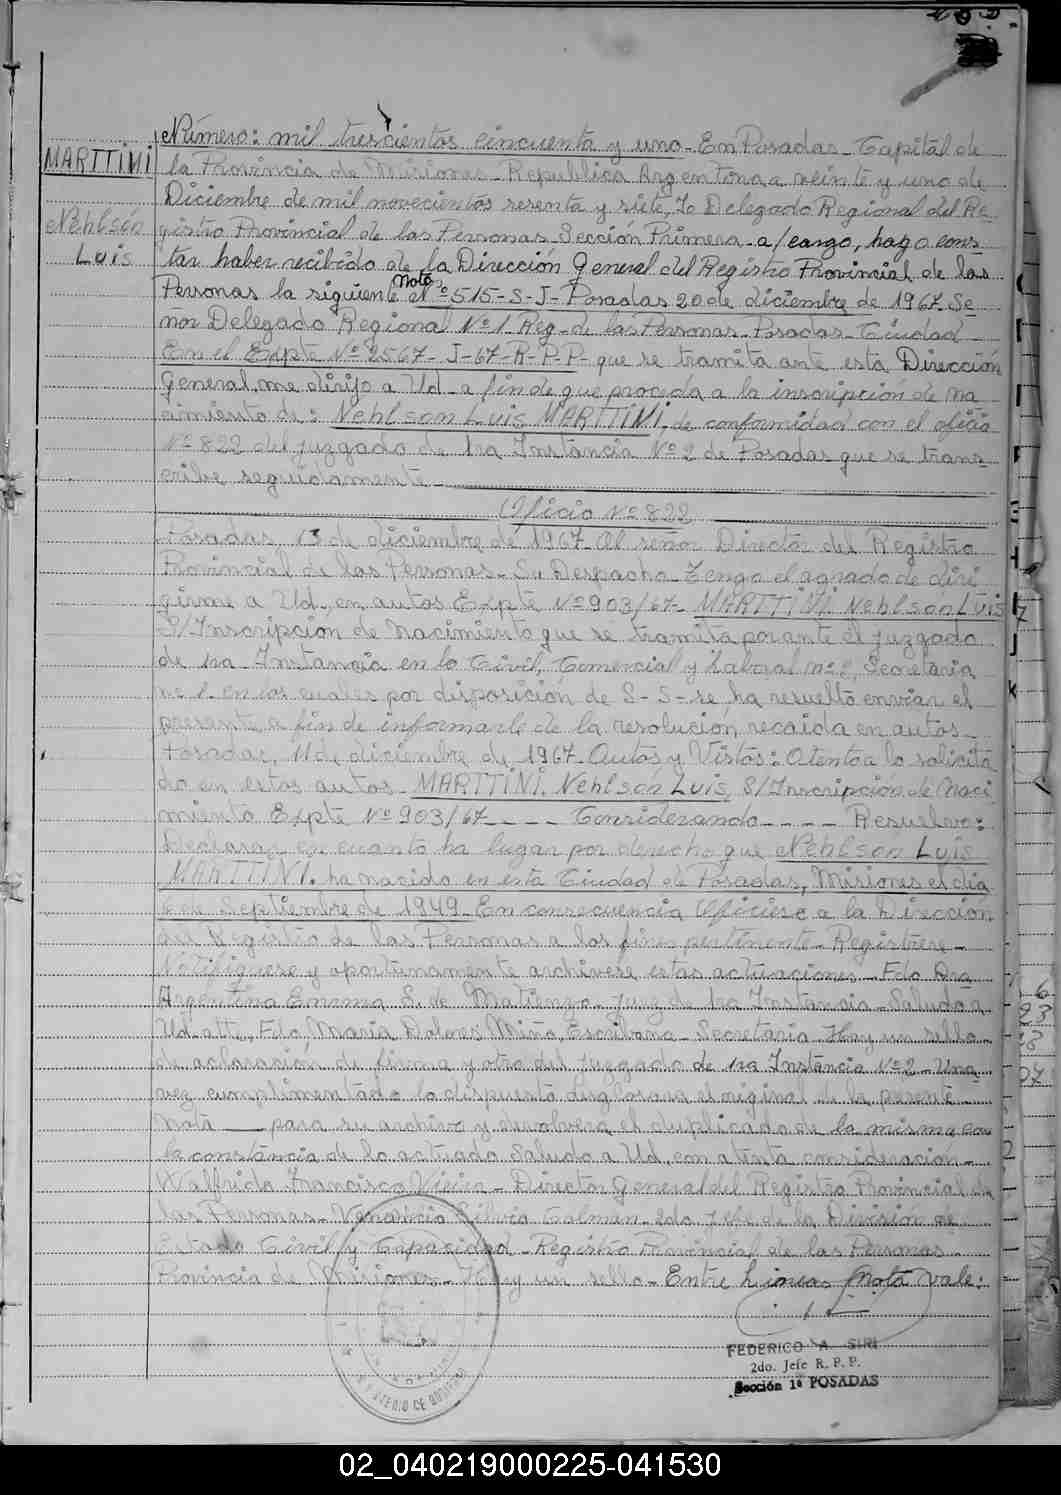 MARTTINI
Nehlsón
Luis
Número: mil trescientos cincuenta y uno - En Posadas - Capital de
la Provincia de Misiones - Republica Argentina a veinte y uno de
Diciembre de mil novecientos sesenta y siete, Yo Delegado Regional del Re-
gistro Provincial de las Personas - Sección Primera - a/cargo, hago cons-
tar haber recibido de la Dirección General del Registro Provincial de las
Personas la siguiente Nota Nº 515 - S - J - Posadas 20 de diciembre de 1967. Se-
ñor Delegado Regional Nº 1 Reg - de las Personas - Posadas - Ciudad -
En el Expte Nº 2567 - J - 67 - R - P - P - que se tramita ante esta Dirección
General, me dirijo a Ud - a fin de que proceda a la inscripción de na-
cimiento de: Nehlson Luis MARTTINI, de conformidad con el oficio
Nº 822 del juzgado de 1ra Instancia Nº 2 de Posadas que se trans-
cribe seguidamente -
Oficio Nº 822
Posadas, 13 de diciembre de 1967 - Al señor Director del Registro
Provincial de las Personas - Su Despacho - Tengo el agrado de diri
girme a Ud., en autos Expte Nº 903/67 - MARTTINI. Nehlsón Luis
S/Inscripción de Nacimiento que se tramita por ante el juzgado
de 1ra Instancia en lo Civil, Comercial y Laboral nº 2, Secretaria
en los cuales por disposición de S - S - se ha resuelto enviar el
presente a fin de informarle de la resolución recaida en autos -
Posadas, 11 de diciembre de 1967. Autos y Vistos: Atento a lo solicita
do en estos autos - MARTTINI. Nehlsón Luis, S/Inscripción de Naci
miento Expte Nº 903/67 - - - - Considerando - - - - Resuelvo:
Declarar en cuanto ha lugar por derecho que Nehlsón Luis
MARTTINI. ha nacido en esta Ciudad de Posadas, Misiones el dia
de Septiembre de 1949 - En consecuencia Oficiese a la Dirección
del Registro de las Personas a los fines pertinente - Registrese -
Notifiquese y oportunamente archivese estas actuaciones - Fdo Dra
Argentina Emma S. de Matienzo - Juez de 1ra Instancia - Saludo a
Ud. atte, Fdo, Maria Dolores Miño, Escribana - Secretaria - Hay un sello -
de aclaración de firma y otro del juzgado de 1ra Instancia Nº 2 - Una
vez cumplimentado lo dispuesto desglosara el original de la presente -
Nota — para su archivo y devolverá el duplicado de la misma con
la constancia de lo actuado. Saludo a Ud. con atenta consideracion -
Walfrido Francisco Vieira - Director General del Registro Provincial de
las Personas - Venancio Silvio Galman - 2do Jefe de la División de
Estado Civil y Capacidad - Registro Provincial de las Personas -
Provincia de Misiones - Hay un sello - Entre Lineas Nota vale:
FEDERICO A SIRI
2do. Jefe R. P. P.
Sección 1ª POSADAS
02_040219000225-041530